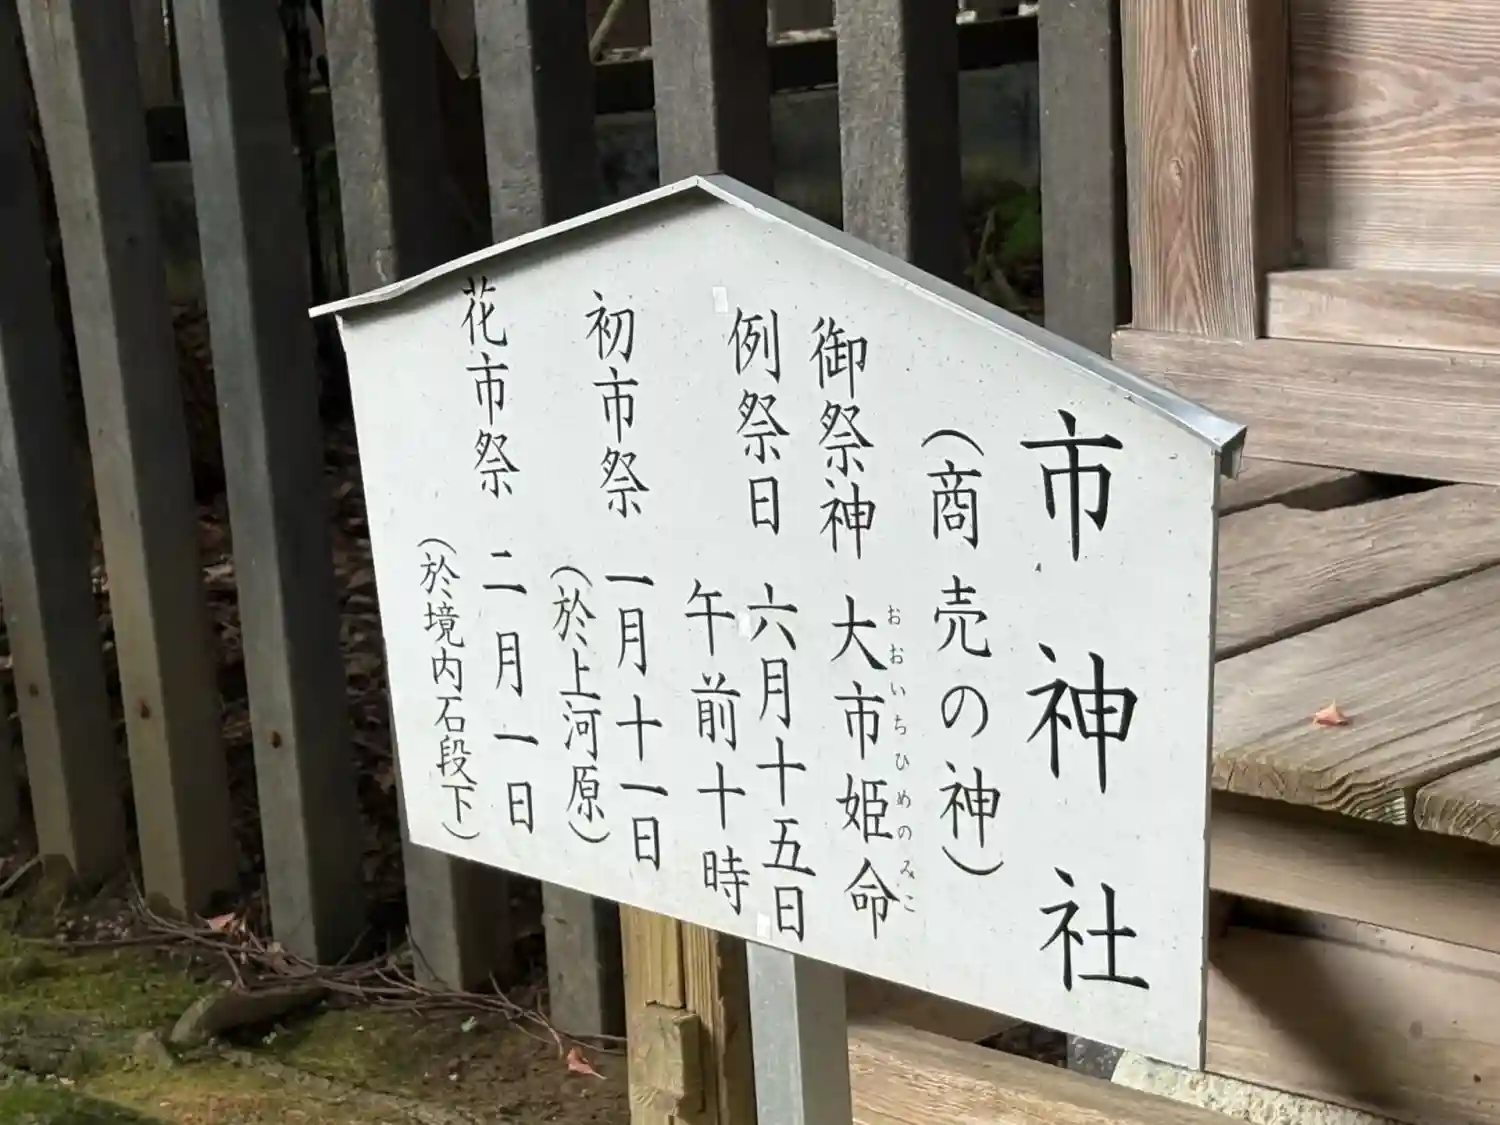 市神社
（商売の神）
御祭神 大市姫命
おおいちひめのみこ
例祭日 六月十五日
午前十時
初市祭 一月十一日
（於、上河原）
花市祭 二月一日
（於、境内石段下）